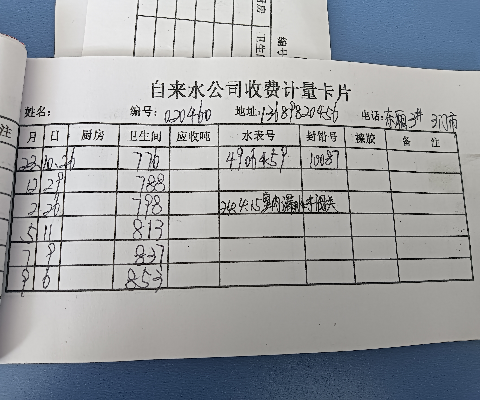 自来水公司收费计量卡片
姓名: 编号: 020460 地址: 13689820456 电话: 东丽3# 3门市
月 日 厨房 卫生间 应收吨 水表号 封铅号 橡胶 备 注
23.10.26 776 4906459 10087
12 29 788
2 26 798 24.4.15室内漏水 阀关
5 11 813
7 8 837
9 6 853
注